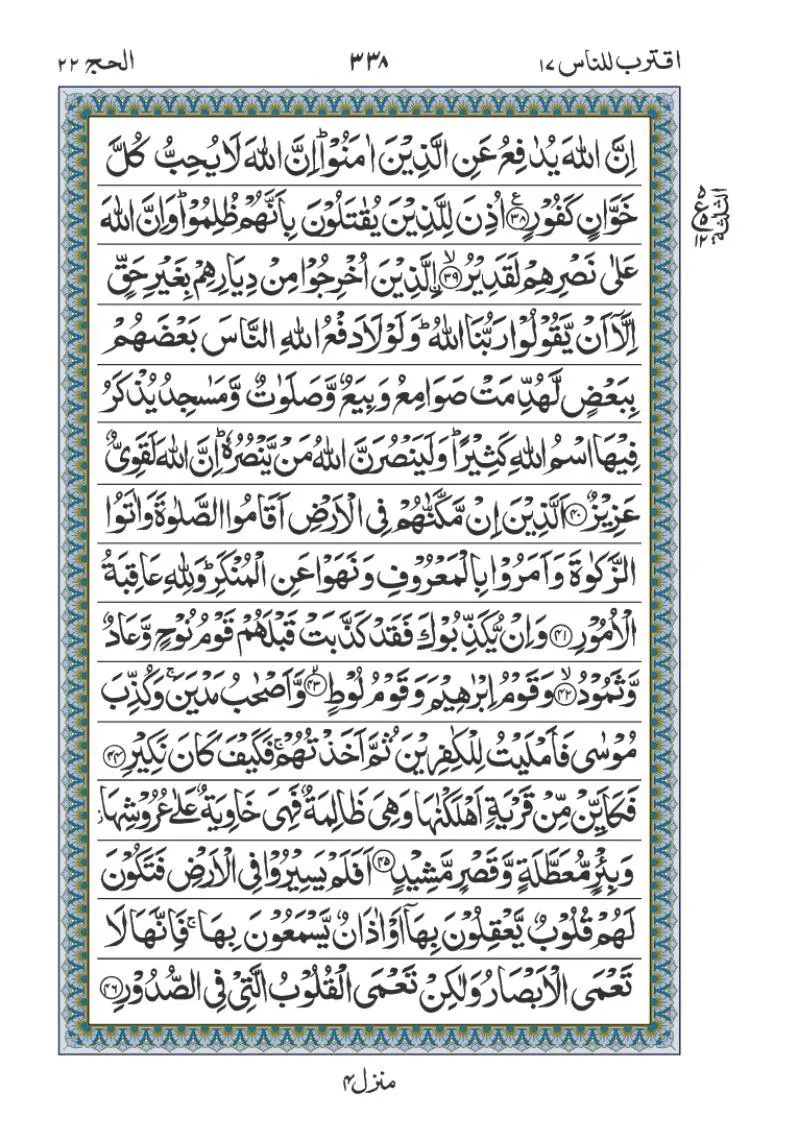 اقترب للناس ۱۷
۳۳۸
الحج ۲۲
اِنَّ اللّٰهَ یُدٰفِعُ عَنِ الَّذِیْنَ اٰمَنُوْاؕ اِنَّ اللّٰهَ لَا یُحِبُّ كُلَّ
خَوَّانٍ كَفُوْرٍ۠﴿۳۸﴾ اُذِنَ لِلَّذِیْنَ یُقٰتَلُوْنَ بِاَنَّهُمْ ظُلِمُوْاؕ وَاِنَّ اللّٰهَ
عَلٰی نَصْرِهِمْ لَقَدِیْرُۙ﴿۳۹﴾ اِ۟لَّذِیْنَ اُخْرِجُوْا مِنْ دِیَارِهِمْ بِغَیْرِ حَقٍّ
اِلَّاۤ اَنْ یَّقُوْلُوْا رَبُّنَا اللّٰهُؕ وَلَوْلَا دَفْعُ اللّٰهِ النَّاسَ بَعْضَهُمْ
بِبَعْضٍ لَّهُدِّمَتْ صَوَامِعُ وَبِیَعٌ وَّصَلَوٰتٌ وَّمَسٰجِدُ یُذْكَرُ
فِیْهَا اسْمُ اللّٰهِ كَثِیْرًاؕ وَلَیَنْصُرَنَّ اللّٰهُ مَنْ یَّنْصُرُهٗؕ اِنَّ اللّٰهَ لَقَوِیٌّ
عَزِیْزٌ﴿۴۰﴾ اَلَّذِیْنَ اِنْ مَّكَّنّٰهُمْ فِی الْاَرْضِ اَقَامُوا الصَّلٰوةَ وَاٰتَوُا
الزَّكٰوةَ وَاَمَرُوْا بِالْمَعْرُوْفِ وَنَهَوْا عَنِ الْمُنْكَرِؕ وَلِلّٰهِ عَاقِبَةُ
الْاُمُوْرِ﴿۴۱﴾ وَاِنْ یُّكَذِّبُوْكَ فَقَدْ كَذَّبَتْ قَبْلَهُمْ قَوْمُ نُوْحٍ وَّعَادٌ
وَّثَمُوْدُۙ﴿۴۲﴾ وَقَوْمُ اِبْرٰهِیْمَ وَقَوْمُ لُوْطٍۙ﴿۴۳﴾ وَّاَصْحٰبُ مَدْیَنَۚ وَكُذِّبَ
مُوْسٰی فَاَمْلَیْتُ لِلْكٰفِرِیْنَ ثُمَّ اَخَذْتُهُمْۚ فَكَیْفَ كَانَ نَكِیْرِ﴿۴۴﴾
فَكَاَیِّنْ مِّنْ قَرْیَةٍ اَهْلَكْنٰهَا وَهِیَ ظَالِمَةٌ فَهِیَ خَاوِیَةٌ عَلٰی عُرُوْشِهَاؗ
وَبِئْرٍ مُّعَطَّلَةٍ وَّقَصْرٍ مَّشِیْدٍ﴿۴۵﴾ اَفَلَمْ یَسِیْرُوْا فِی الْاَرْضِ فَتَكُوْنَ
لَهُمْ قُلُوْبٌ یَّعْقِلُوْنَ بِهَاۤ اَوْ اٰذَانٌ یَّسْمَعُوْنَ بِهَاۚ فَاِنَّهَا لَا
تَعْمَی الْاَبْصَارُ وَلٰكِنْ تَعْمَی الْقُلُوْبُ الَّتِیْ فِی الصُّدُوْرِ﴿۴۶﴾
۵
ع
۵
۱۲
الثلثة
منزل۴